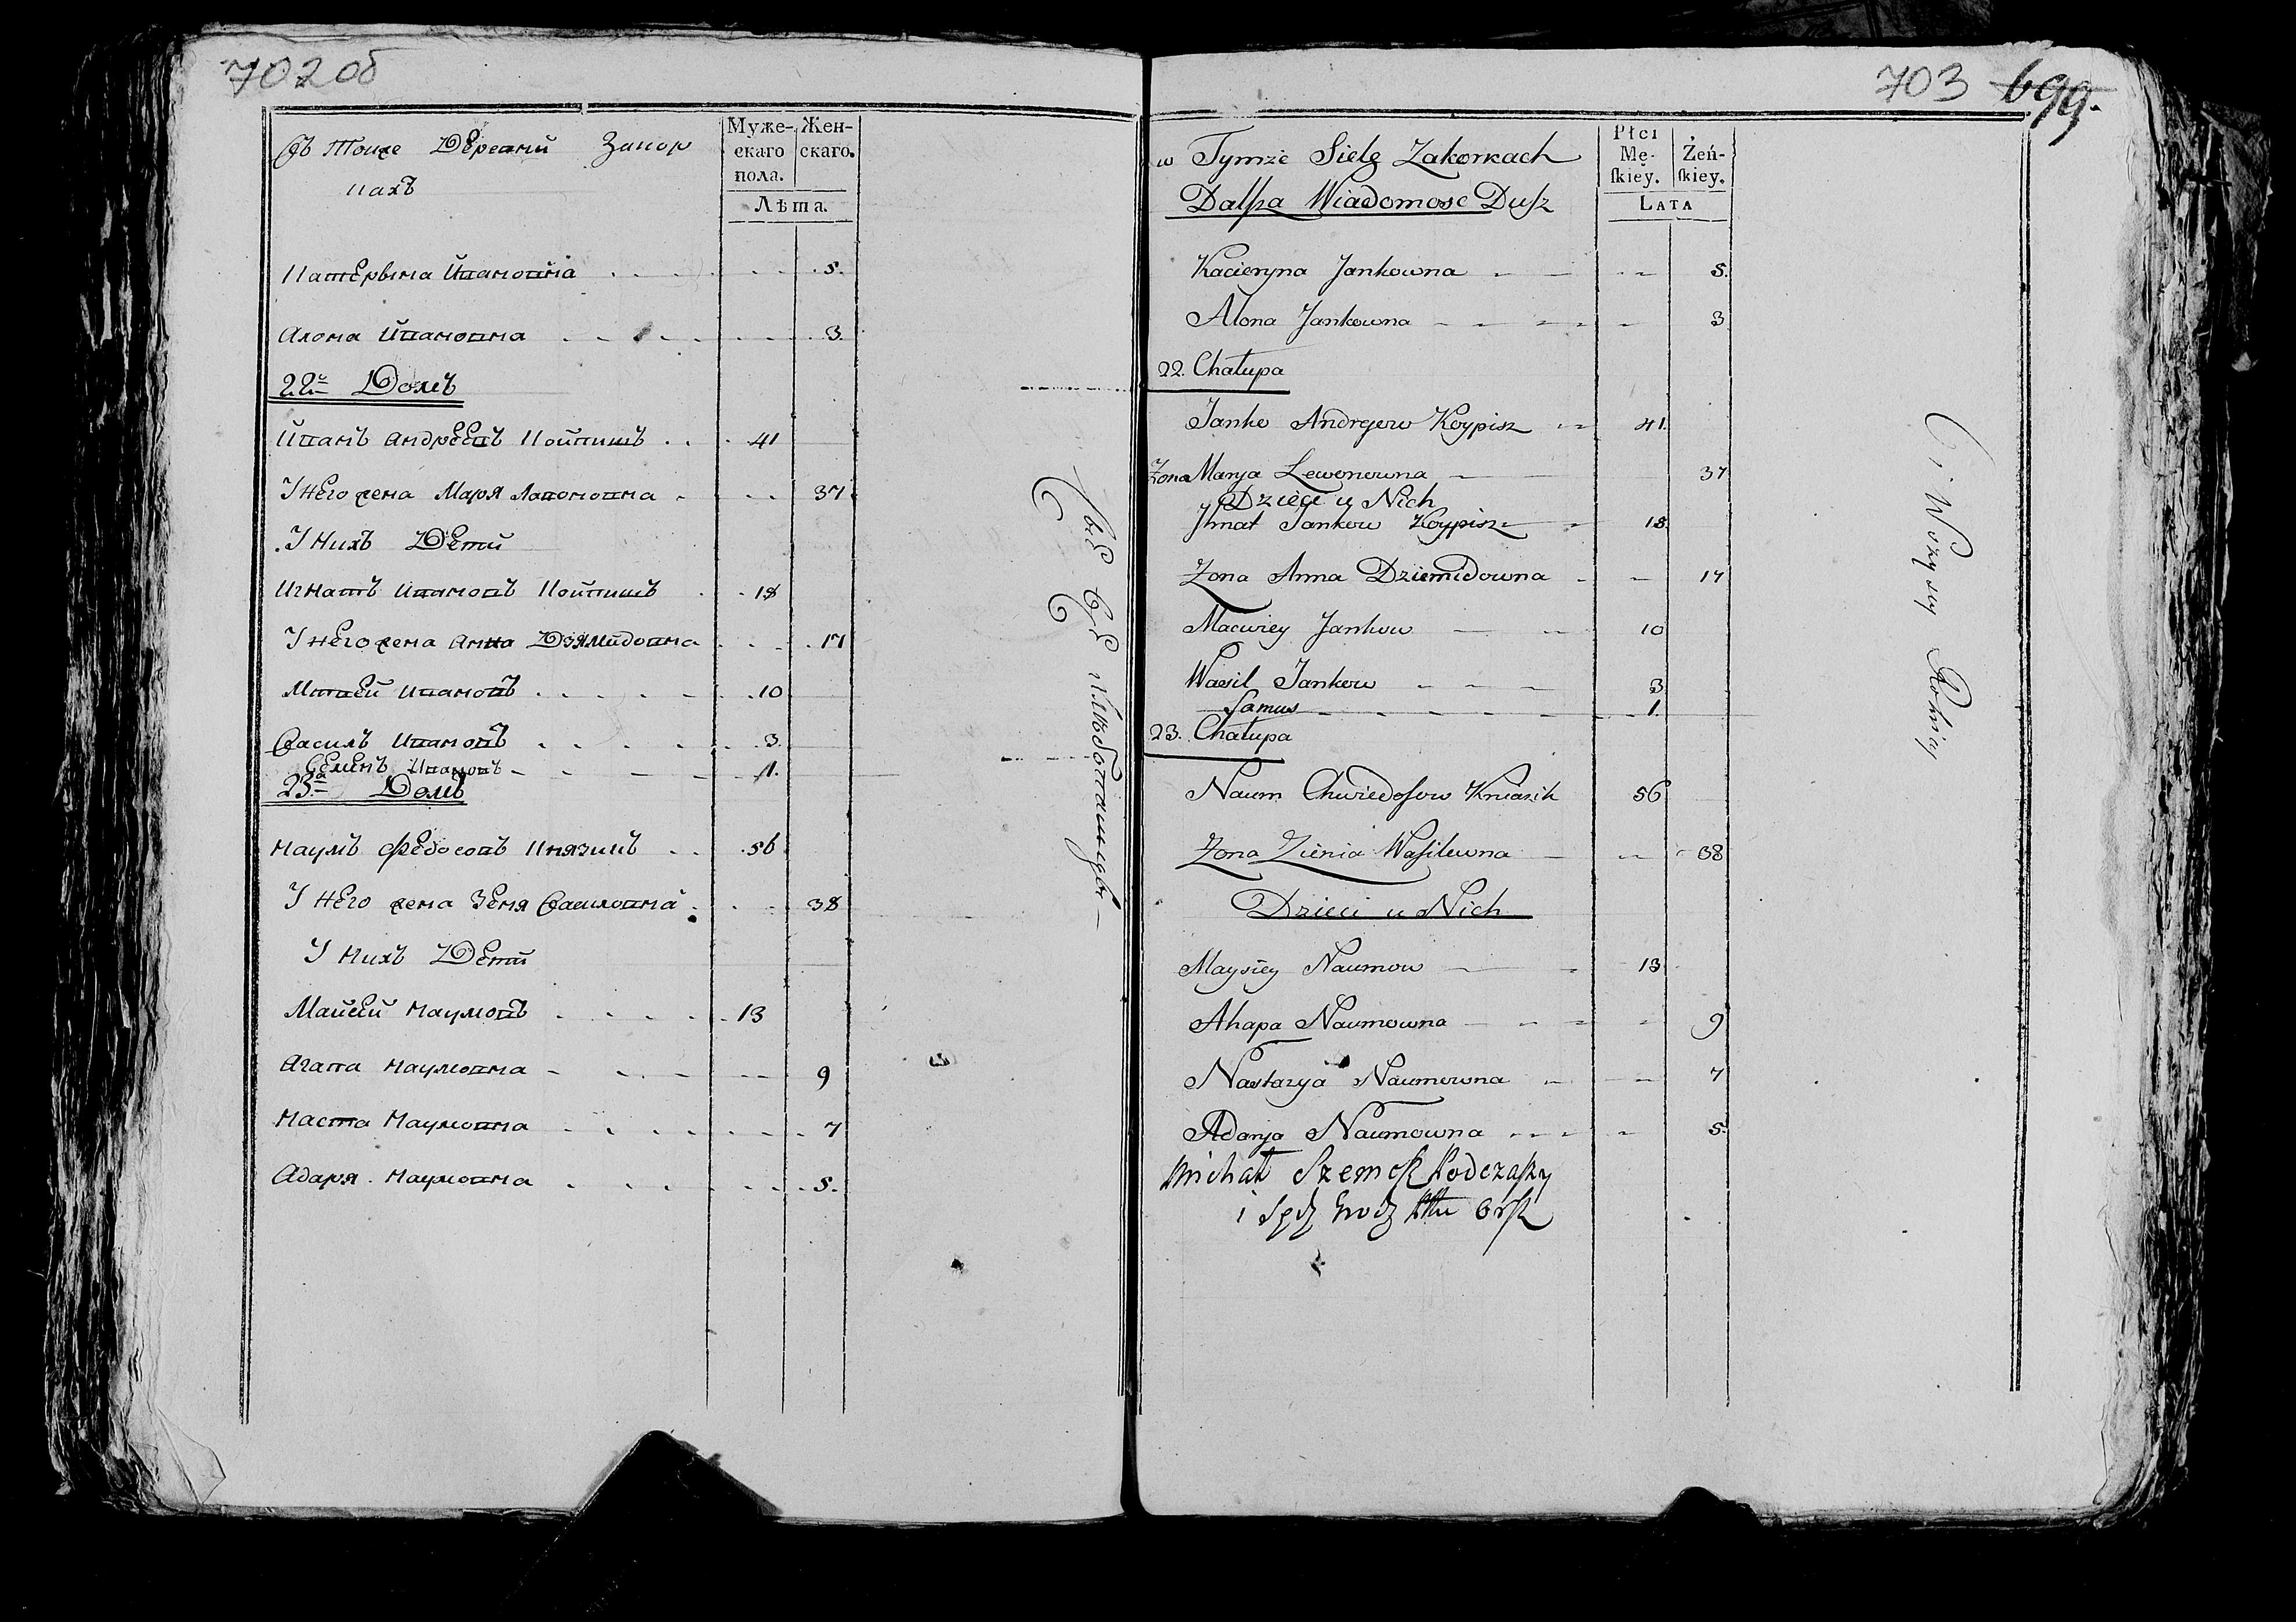 702об
Въ Тойже Деревни Закор
ках
Мужескаго пола.
Женскаго.
Лѣта.
Катерына Ивановна 5.
Алона Ивановна 3.
22й Домъ
Иванъ Андреевъ Койпишъ 41
У него жена Маря Лавоновна 37
У нихъ Дети
Игнатъ Ивановъ Койпишъ 18
У него жена Анна Дзямидовна 17
Мацвей Ивановъ 10
Василь Ивановъ 3.
Семенъ Ивановъ 1.
23й Домъ
Наумъ Федосовъ Князикъ 56
У него жена Зеня Василовна 38
У нихъ Дети
Майсей Наумовъ 13
Агапа Наумовна 9
Наста Наумовна 7
Адаря Наумовна 5.
Все Все хлѣбопашцы
703 699.
w Tymże Siele Zakorkach
Dalsza Wiadomosc Dusz
Płci
Mę-
skiey.
Żeń-
skiey.
LATA
Kacieryna Jankowna 5.
Alona Jankowna 3
22. Chałupa
Janko Andrejew Koypisz 41.
Żona Marya Lewonowna 37
Dzieci u Nich
Jhnat Jankow Koypisz 18
Zona Anna Dziemidowna 17
Maciviey Jankow 10
Wasil Jankow 3
Samus 1.
23. Chałupa
Naum Chwiedosow Kniazik 56
Zona Zienia Wasilewna 38
Dzieci u Nich
Maysiey Naumow 13
Ahapa Naumowna 9
Nastazya Naumowna 7
Adarya Naumowna 5.
Michał Szemesz Podczaszy
i Sędz Grodz Pttu Orsz
Ci Wszyscy Rolnicy